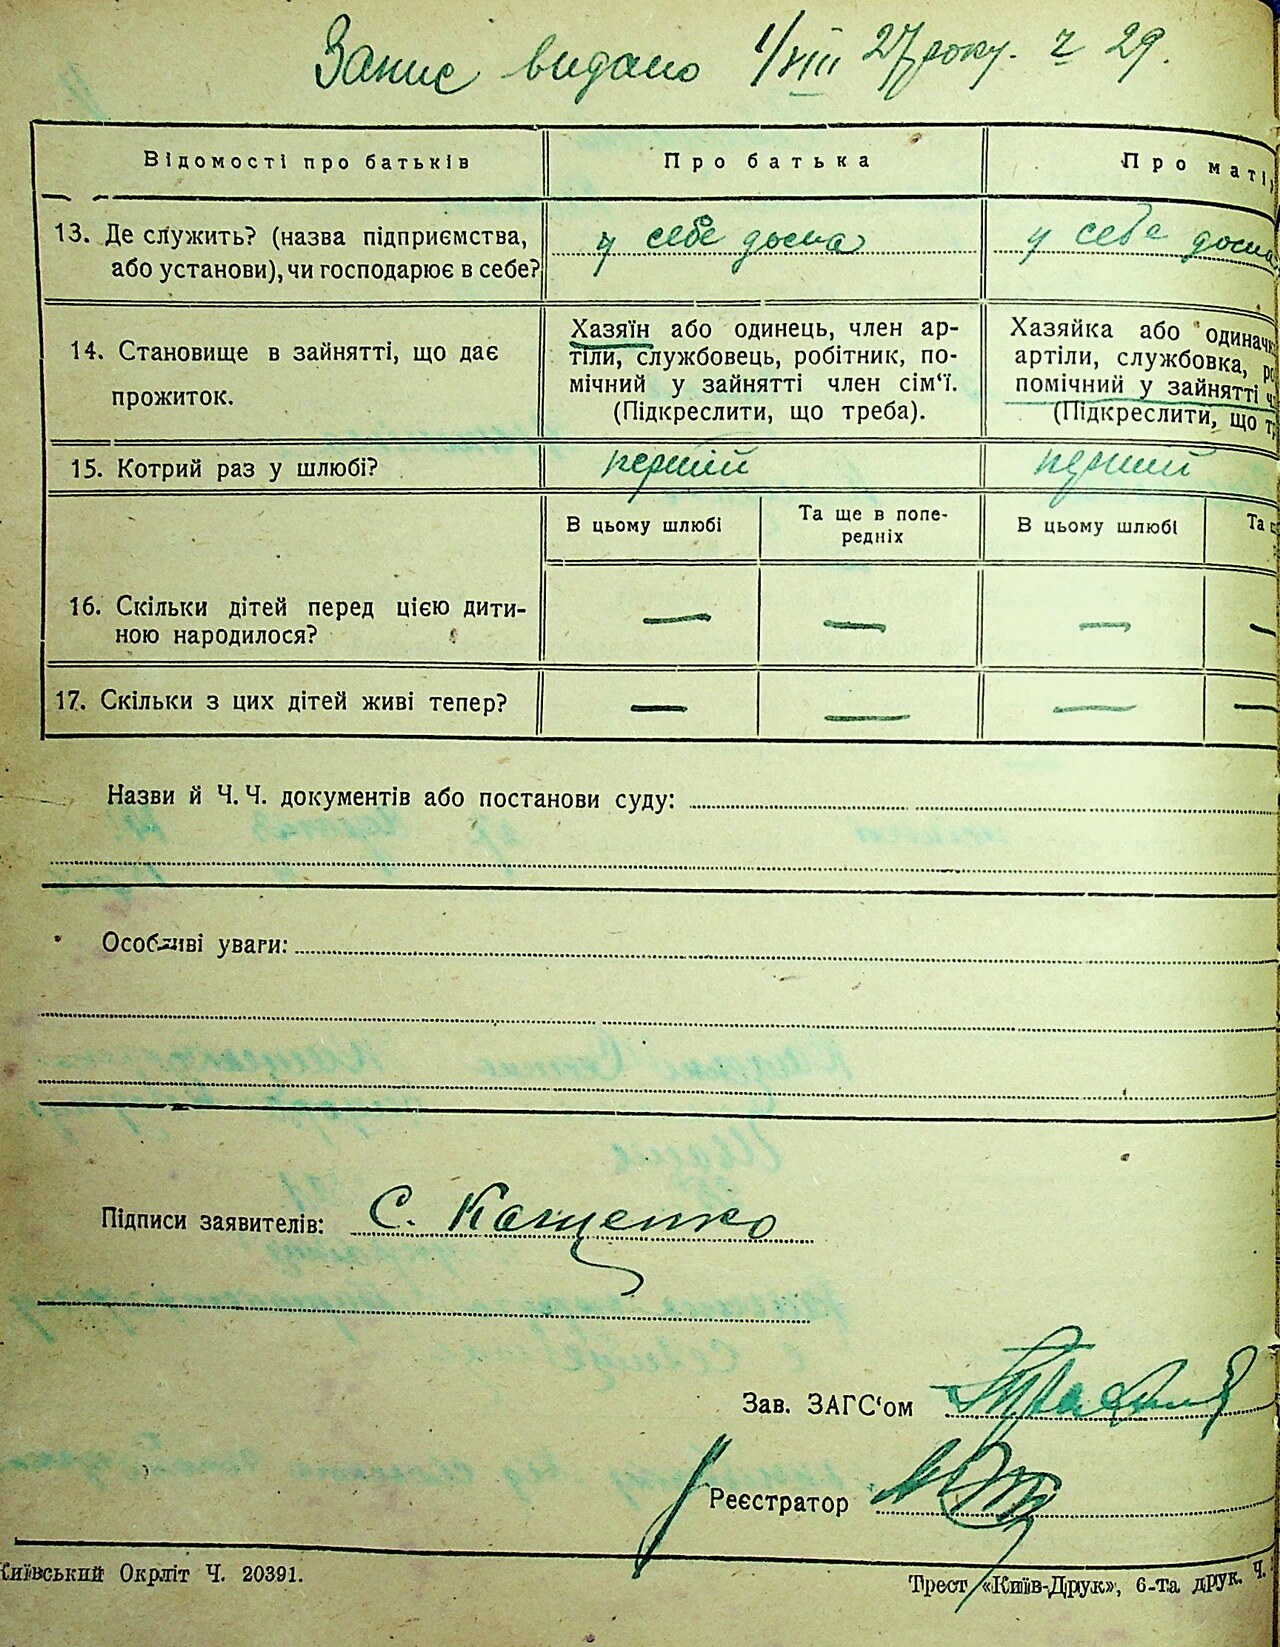 Запис видано 1/VIII 27 року. ч 29.
Відомості про батьків
Про батька
Про маті
13. Де служить? (назва підприємства,
або установи), чи господарює в себе?
у себе дома
у себе дома
14. Становище в зайнятті, що дає
прожиток.
Хазяїн або одинець, член ар-
тіли, службовець, робітник, по-
мічний у зайнятті член сім'ї.
(Підкреслити, що треба).
Хазяйка або одиначк
артіли, службовка, ро
помічний у зайнятті ч
(Підкреслити, що т
15. Котрий раз у шлюбі?
перший
перший
В цьому шлюбі
Та ще в попе-
редніх
В цьому шлюбі
Та
16. Скільки дітей перед цією дити-
ною народилося?
— — — —
17. Скільки з цих дітей живі тепер?
— — — —
Назви й Ч. Ч. документів або постанови суду:
Особливі уваги:
Підписи заявителів: С. Кащенко
Зав. ЗАГС'ом
Реєстратор
Київський Окрліт Ч. 20391.
Трест «Київ-Друк», 6-та друк. Ч.